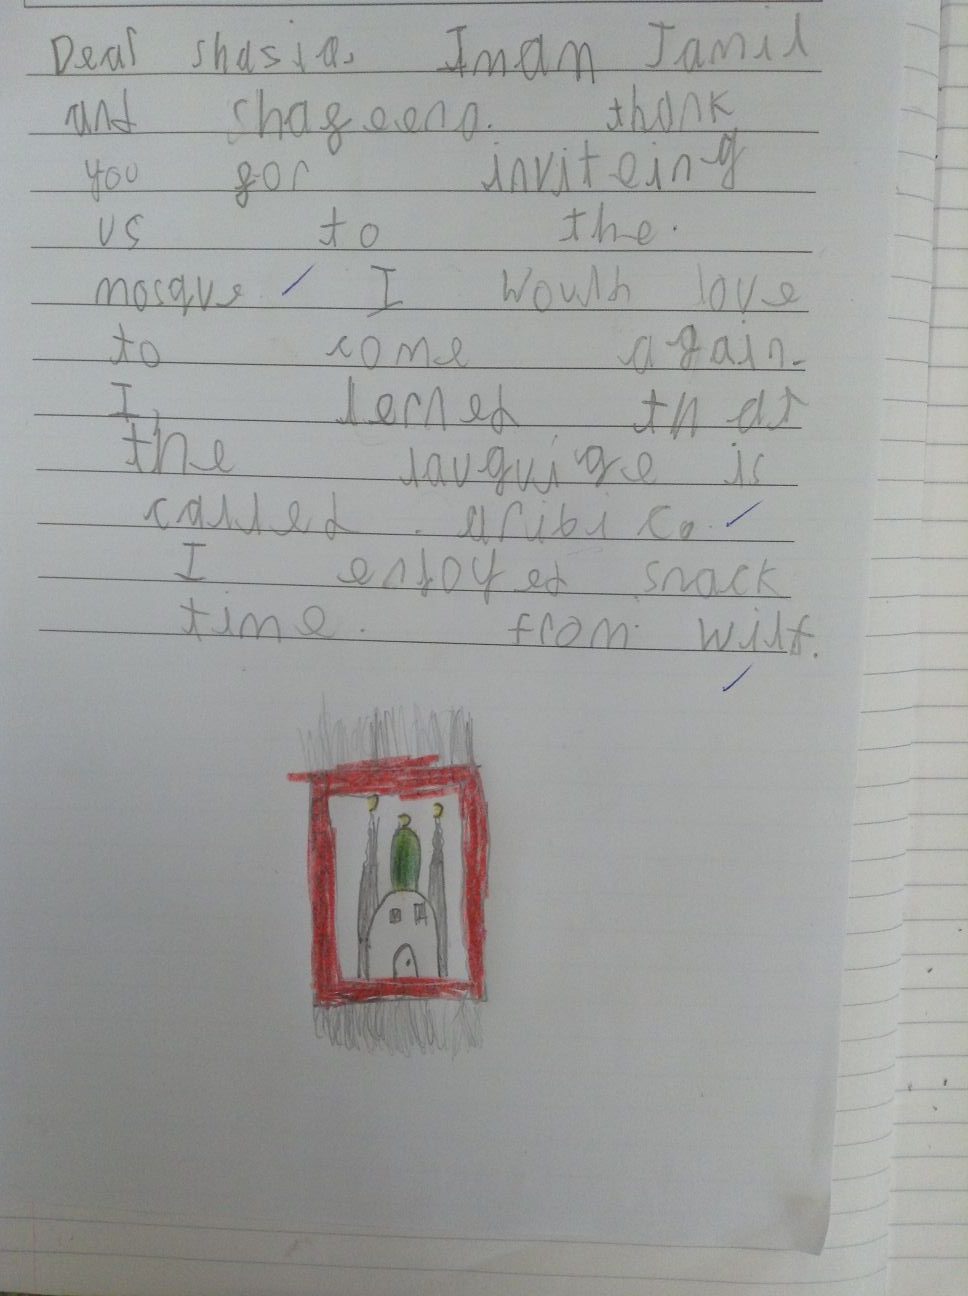 Dear shasia. Iman Jamil
and shageena. thank
you for inviteing
us to the.
mosque I would love
to come again.
I lerned that
the lauguige is
called. aribic.
I enjoyed snack
time. from wilf.